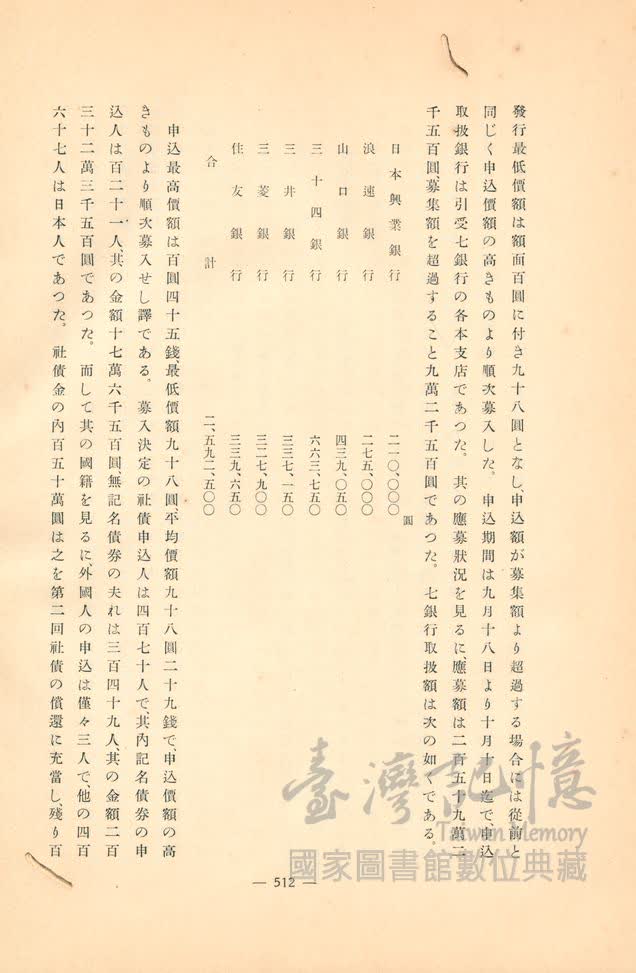 發行最低價額は額面百圓に付き九十八圓となし、申込額が募集額より超過する場合には從前と
同じく申込價額の高きものより順次募入した。　申込期間は九月十八日より十月十日迄で、申込
取扱銀行は引受七銀行の各本支店であつた。　其の應募狀況を見るに、應募額は二百五十九萬二
千五百圓、募集額を超過すること九萬二千五百圓であつた。　七銀行取扱額は次の如くである。
圓
日本興業銀行　二一〇、〇〇〇
浪速銀行　二七五、〇〇〇
山口銀行　四三九、〇五〇
三十四銀行　六六三、七五〇
三井銀行　三三七、一五〇
三菱銀行　三二七、九〇〇
住友銀行　三三九、六五〇
合計　二、五九二、五〇〇
申込最高價額は百圓四十五錢、最低價額九十八圓、平均價額九十八圓二十九錢で、申込價額の高
きものより順次募入せし譯である。　募入決定の社債申込人は四百七十人で、其內記名債券の申
込人は百二十一人、其の金額十七萬六千五百圓、無記名債券の夫れは三百四十九人、其の金額二百
三十二萬三千五百圓であつた。　而して其の國籍を見るに、外國人の申込は僅々三人で、他の四百
六十七人は日本人であつた。　社債金の內百五十萬圓は之を第二回社債の償還に充當し、殘り百
— 512 —
臺灣記憶
Taiwan Memory
國家圖書館數位典藏